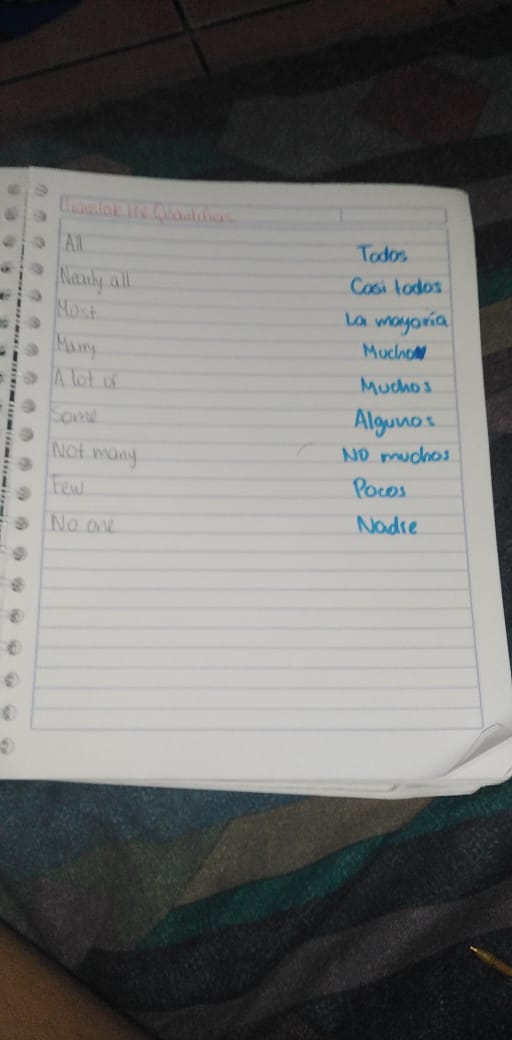 Translate the Quantifiers
All Todos
Nearly all Casi todos
Most La mayoría
Many Mucho
A lot of Muchos
Some Algunos
Not many No muchos
Few Pocos
No one Nadie